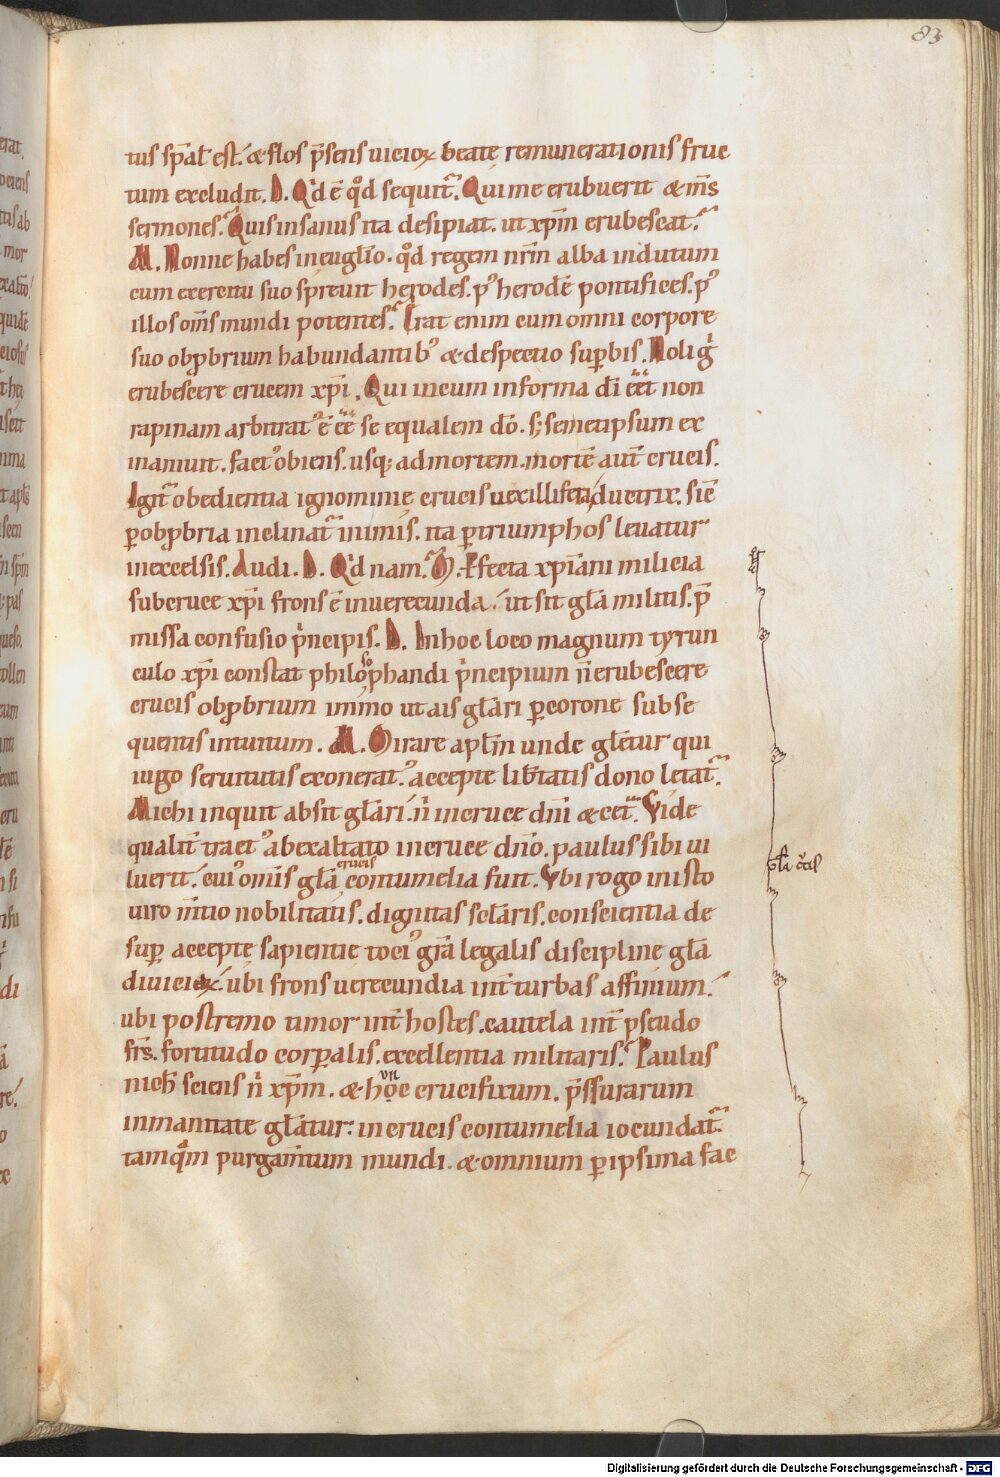 83
tus sp̄al est. & flos p̄sens uicioꝝ beate remunerationis fruc
tum excludit. D. Qď ē qđ sequit᷑. Qui me erubuerit & m̄s
sermones. Quis insanus ita desipiat. ut xp̄m erubescat.
M. Nonne habes in euḡlio. qđ regem nr̄m alba indutum
cum exercitu suo spreuit herodes. pꝰ herodē pontifices. pꝰ
illos om̄s mundi potentes. Erat enim cum omni corpore
suo obꝓbrium habundantibꝰ & despectio suꝑbis. Noli gͥ
erubescere crucem xp̄i. Qui mcum in forma dī eēt non
rapinam arbitratꝰ ē eē se equalem dō. s; semetipsum ex
inaniuit. factꝰ obiens. usq; ad mortem. mortē aut̄ crucis.
Igit᷑ obedientia ignominie crucis uexillifera, ductrix. sic̄
ꝑ obꝓbria inclinat᷑ inimis. ita ꝑ triumphos leuatur
in excelsis. Audi. D. Qď nam. M. Pfecta xp̄iani milicia
sub cruce xp̄i frons ē inuerecunda. ut sit gl̄a militis. p̄
missa confusio pͥncipis. D. In hoc loco magnum tyrun
culo xp̄i constat philosophandi pͥncipium n̄ erubescere
crucis obꝓbrium immo ut ais gl̄ari ꝑ corone subse
quentis intuitum. M. Mirare apl̄m unde gl̄etur qui
iugo seruitutis exoneratꝰ. accepte lib̄tatis dono letat᷑.
Michi inquit absit gl̄ari. nͥ in cruce dn̄i & cet᷑. Vide
qualit̄ tractꝰ ab exaltato in cruce dn̄o. paulus sibi ui
luerit. cuiꝰ om̄is gl̄a crucis contumelia fuit. Vbi rogo in isto
uiro m̄tio nobilitatis. dignitas scl̄aris. conscientia de
suꝑ accepte sapientie tociꝰ gr̄a legalis discipline gl̄a
diuicioꝝ. ubi frons uerecundia int̄ turbas affinium.
ubi postremo timor int̄ hostes. cautela int̄ pseudo
fr̄s. fortitudo corꝑalis. excellentia militaris. Paulus
nich̄ sciens nͥ xp̄m. & hoc crucifixum. p̄ssurarum
inmanitate gl̄atur. in crucis contumelia iocundat᷑.
tamqͣm purgam̄tum mundi. & omnium ꝑipsima fac